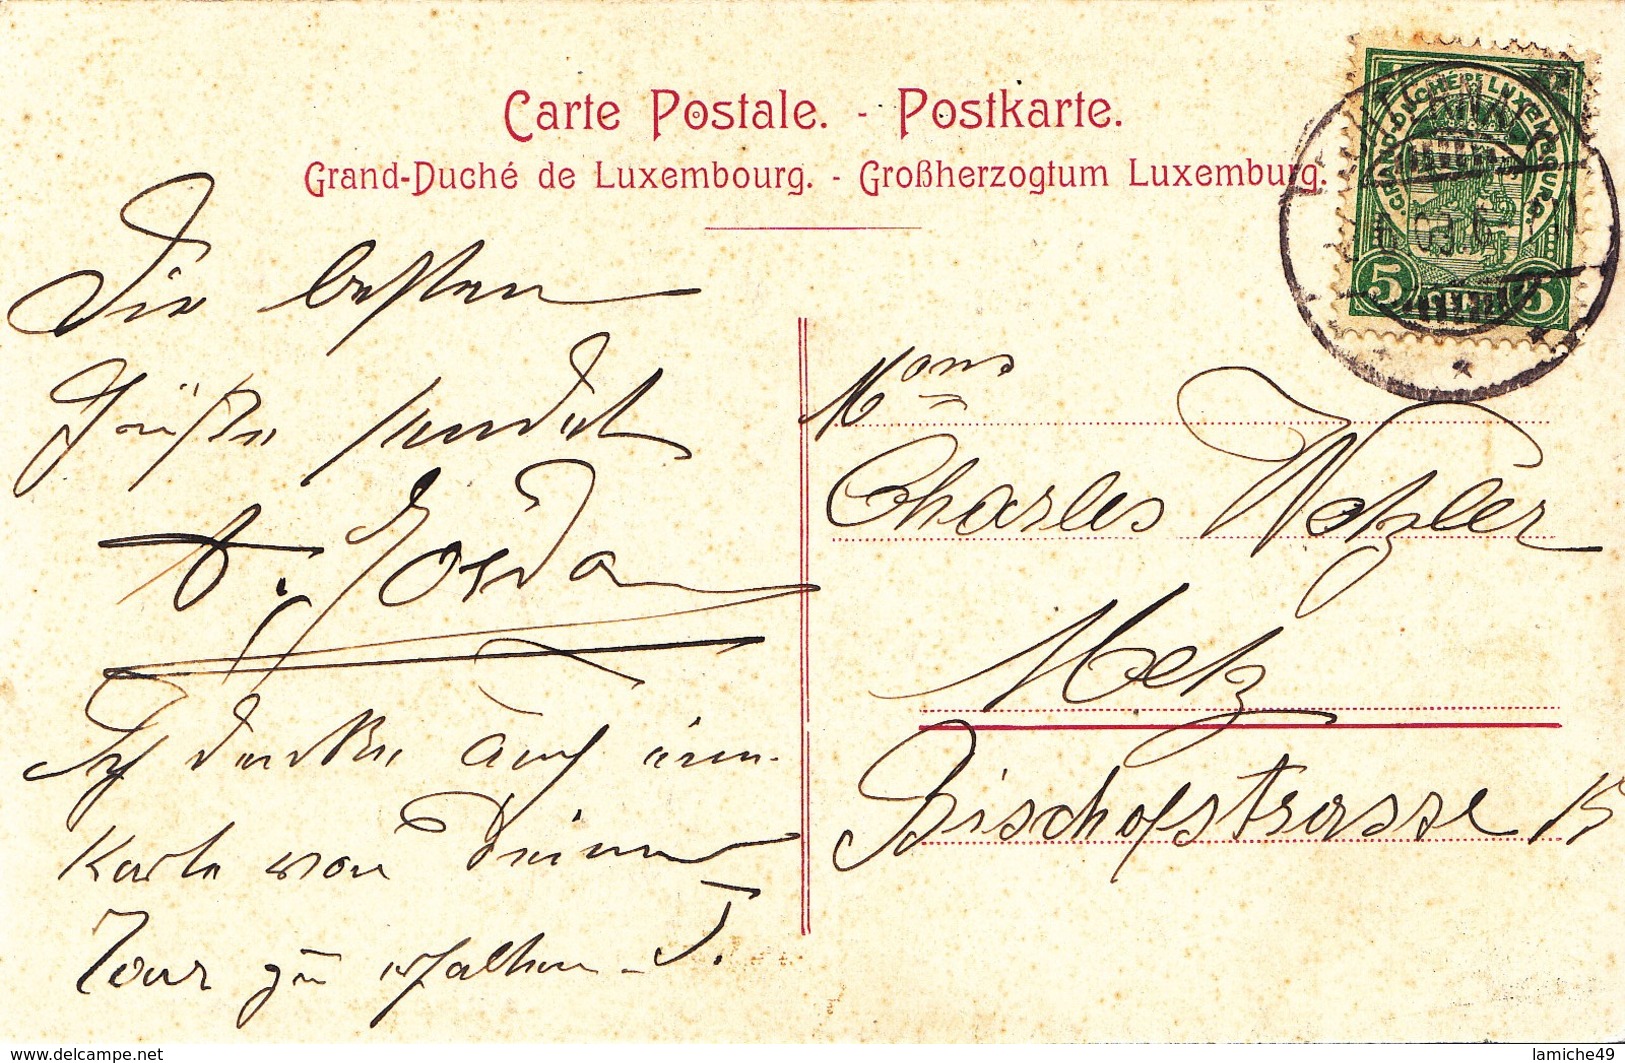 Carte Postale. - Postkarte.
Grand-Duché de Luxembourg. - Großherzogtum Luxemburg.
GRAND-DUCHÉ DE LUXEMBOURG
5 5
Die besten
Grüße sendet
Jordan
Ich denke auch eine
Karte von Deiner
Tour zu erhalten. J.
Mons
Charles Wetzler
Metz
Bischofstrasse 15
www.delcampe.net
lamiche49